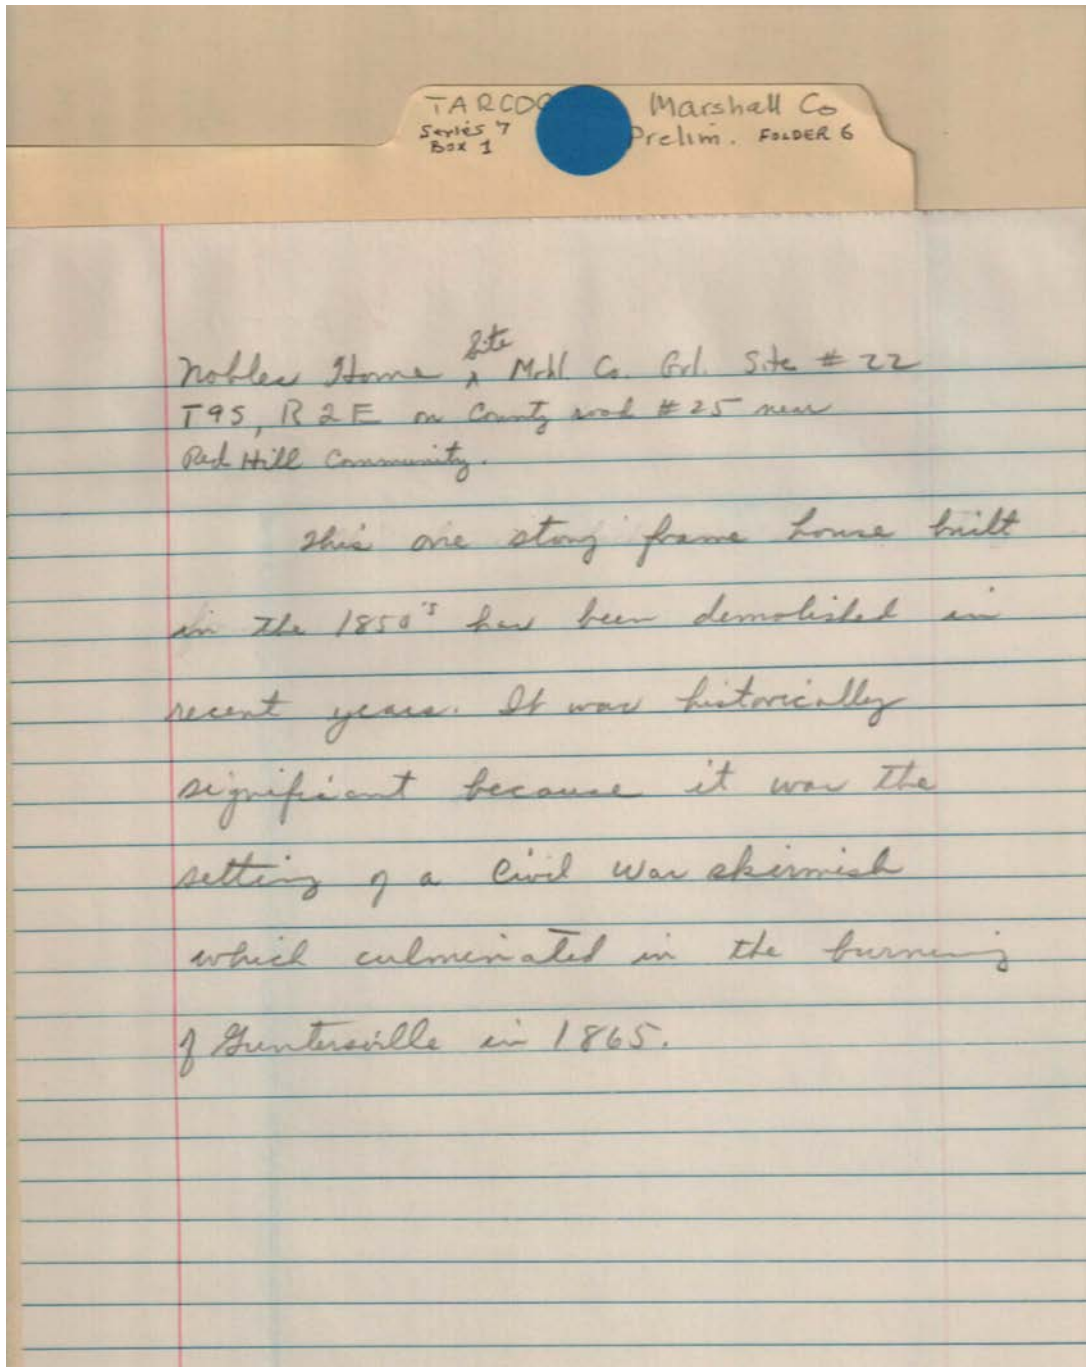 TARCOG Marshall Co
Series 7 Prelim. FOLDER 6
Box 1
Site
Nobles Home ^ Mrhl. Co. Grl. Site # 22
T9S, R2E on County road #25 near
Red Hill Community.
This one story frame house built
in the 1850's has been demolished in
recent years. It was historically
significant because it was the
setting of a Civil War skirmish
which culminated in the burning
of Guntersville in 1865.